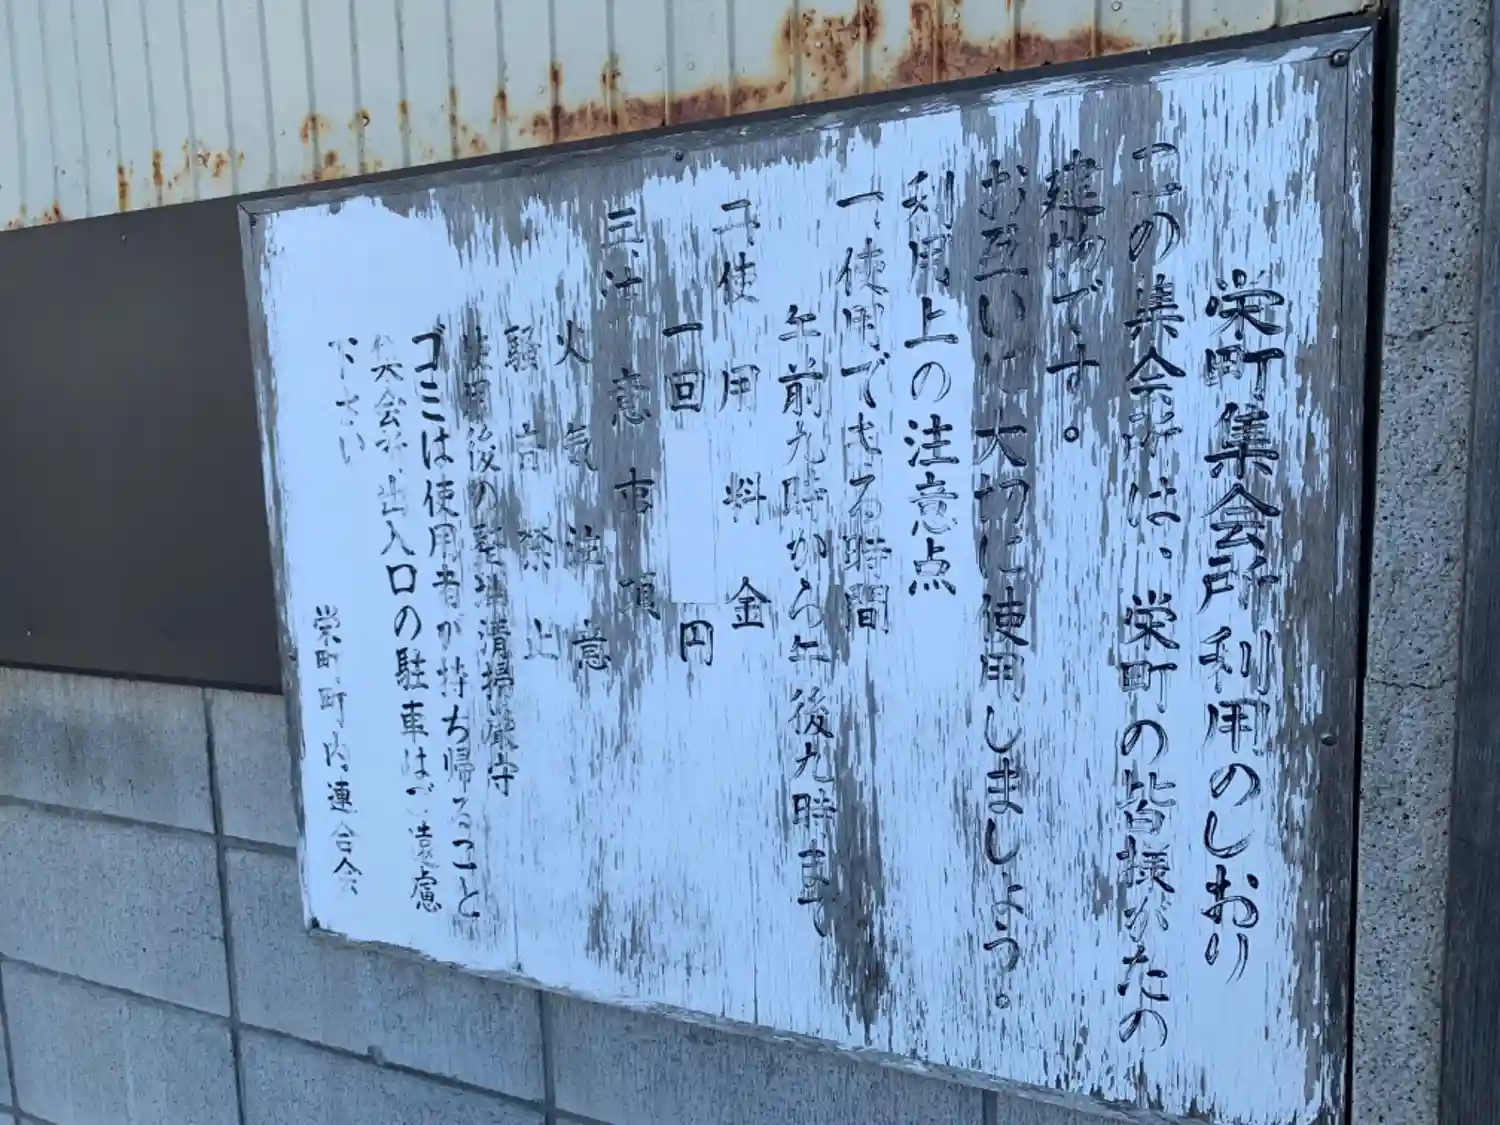 栄町集会所利用のしおり
この集会所は、栄町の皆様がたの
建物です。
お互いに大切に使用しましょう。
利用上の注意点
一、使用できる時間
午前九時から午後九時まで
二、使用料金
一回 円
三、注意事項
火気注意
騒音禁止
使用後の整理清掃厳守
ゴミは使用者が持ち帰ること
集会所出入口の駐車はご遠慮
下さい
栄町町内連合会